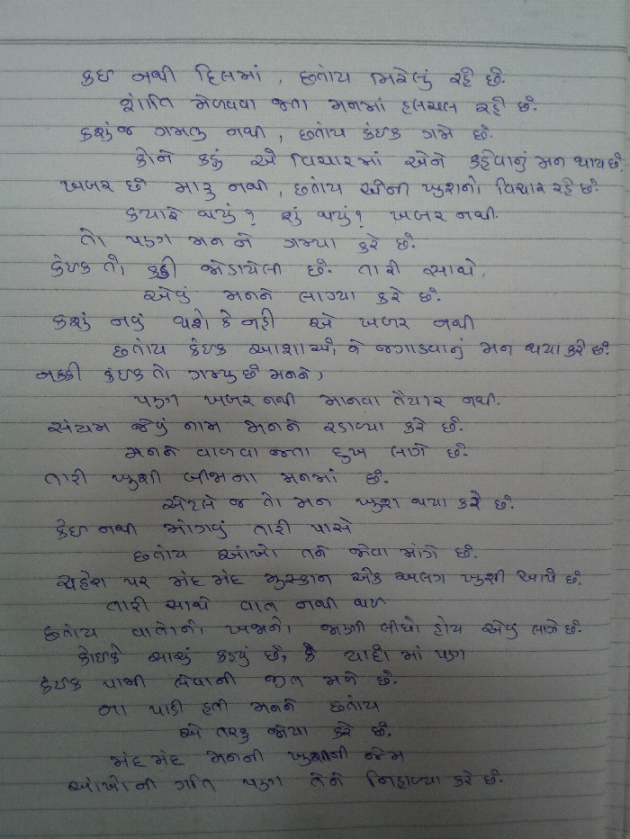 કઇ નથી દિલમાં, છતાંય ભરેલું રહે છે.
શાંતિ મેળવવા જતા મનમાં હલચલ રહે છે.
કશુંજ ગમતુ નથી, છતાંય કંઇક ગમે છે.
કોને કહું એ વિચારમાં એને કહેવાનું મન થાય છે.
ખબર છે મારુ નથી, છતાંય એની ખુશીનો વિચાર રહે છે.
કયારે થયું? શું થયું? ખબર નથી.
તો પણ મનને ગમ્યા કરે છે.
કંઇક તો, કડી જોડાયેલી છે. તારી સાથે,
એવું મનને લાગ્યા કરે છે.
કશું નવું થશે કે નહી એ ખબર નથી
છતાંય કંઇક આશાઓ, ને જગાડવાનું મન થયા કરે છે.
નક્કી કંઇક તો ગમ્યુ છે મનને,
પણ ખબર નથી માનવા તૈયાર નથી.
સંયમ જેવું નામ મનને રડાવ્યા કરે છે.
મનને વાળવા જતા દુખ લાગે છે.
તારી ખુશી બીજાના મનમાં છે.
એટલે જ તો મન ખુશ થયા કરે છે.
કંઇ નથી માંગવું તારી પાસે
છતાંય આંખો તને જોવા માંગે છે.
ચહેરા પર મંદ મંદ મુસ્કાન એક અલગ ખુશી આપે છે.
તારી સાથે વાત નથી થઇ
છતાંય વાતોનો ખજાનો જાણી લીધો હોય એવું લાગે છે.
કોઇકે સાચું કહ્યું છે, કે યાદો માં પણ
કંઇક પામી લેવાની જીત મળે છે.
ના પાડી હતી મનને છતાંય
એ તરફ જોયા કરે છે.
મંદ મંદ મનની ખુશીની જેમ
આંખોની ગતિ પણ તેને નિહાળ્યા કરે છે.